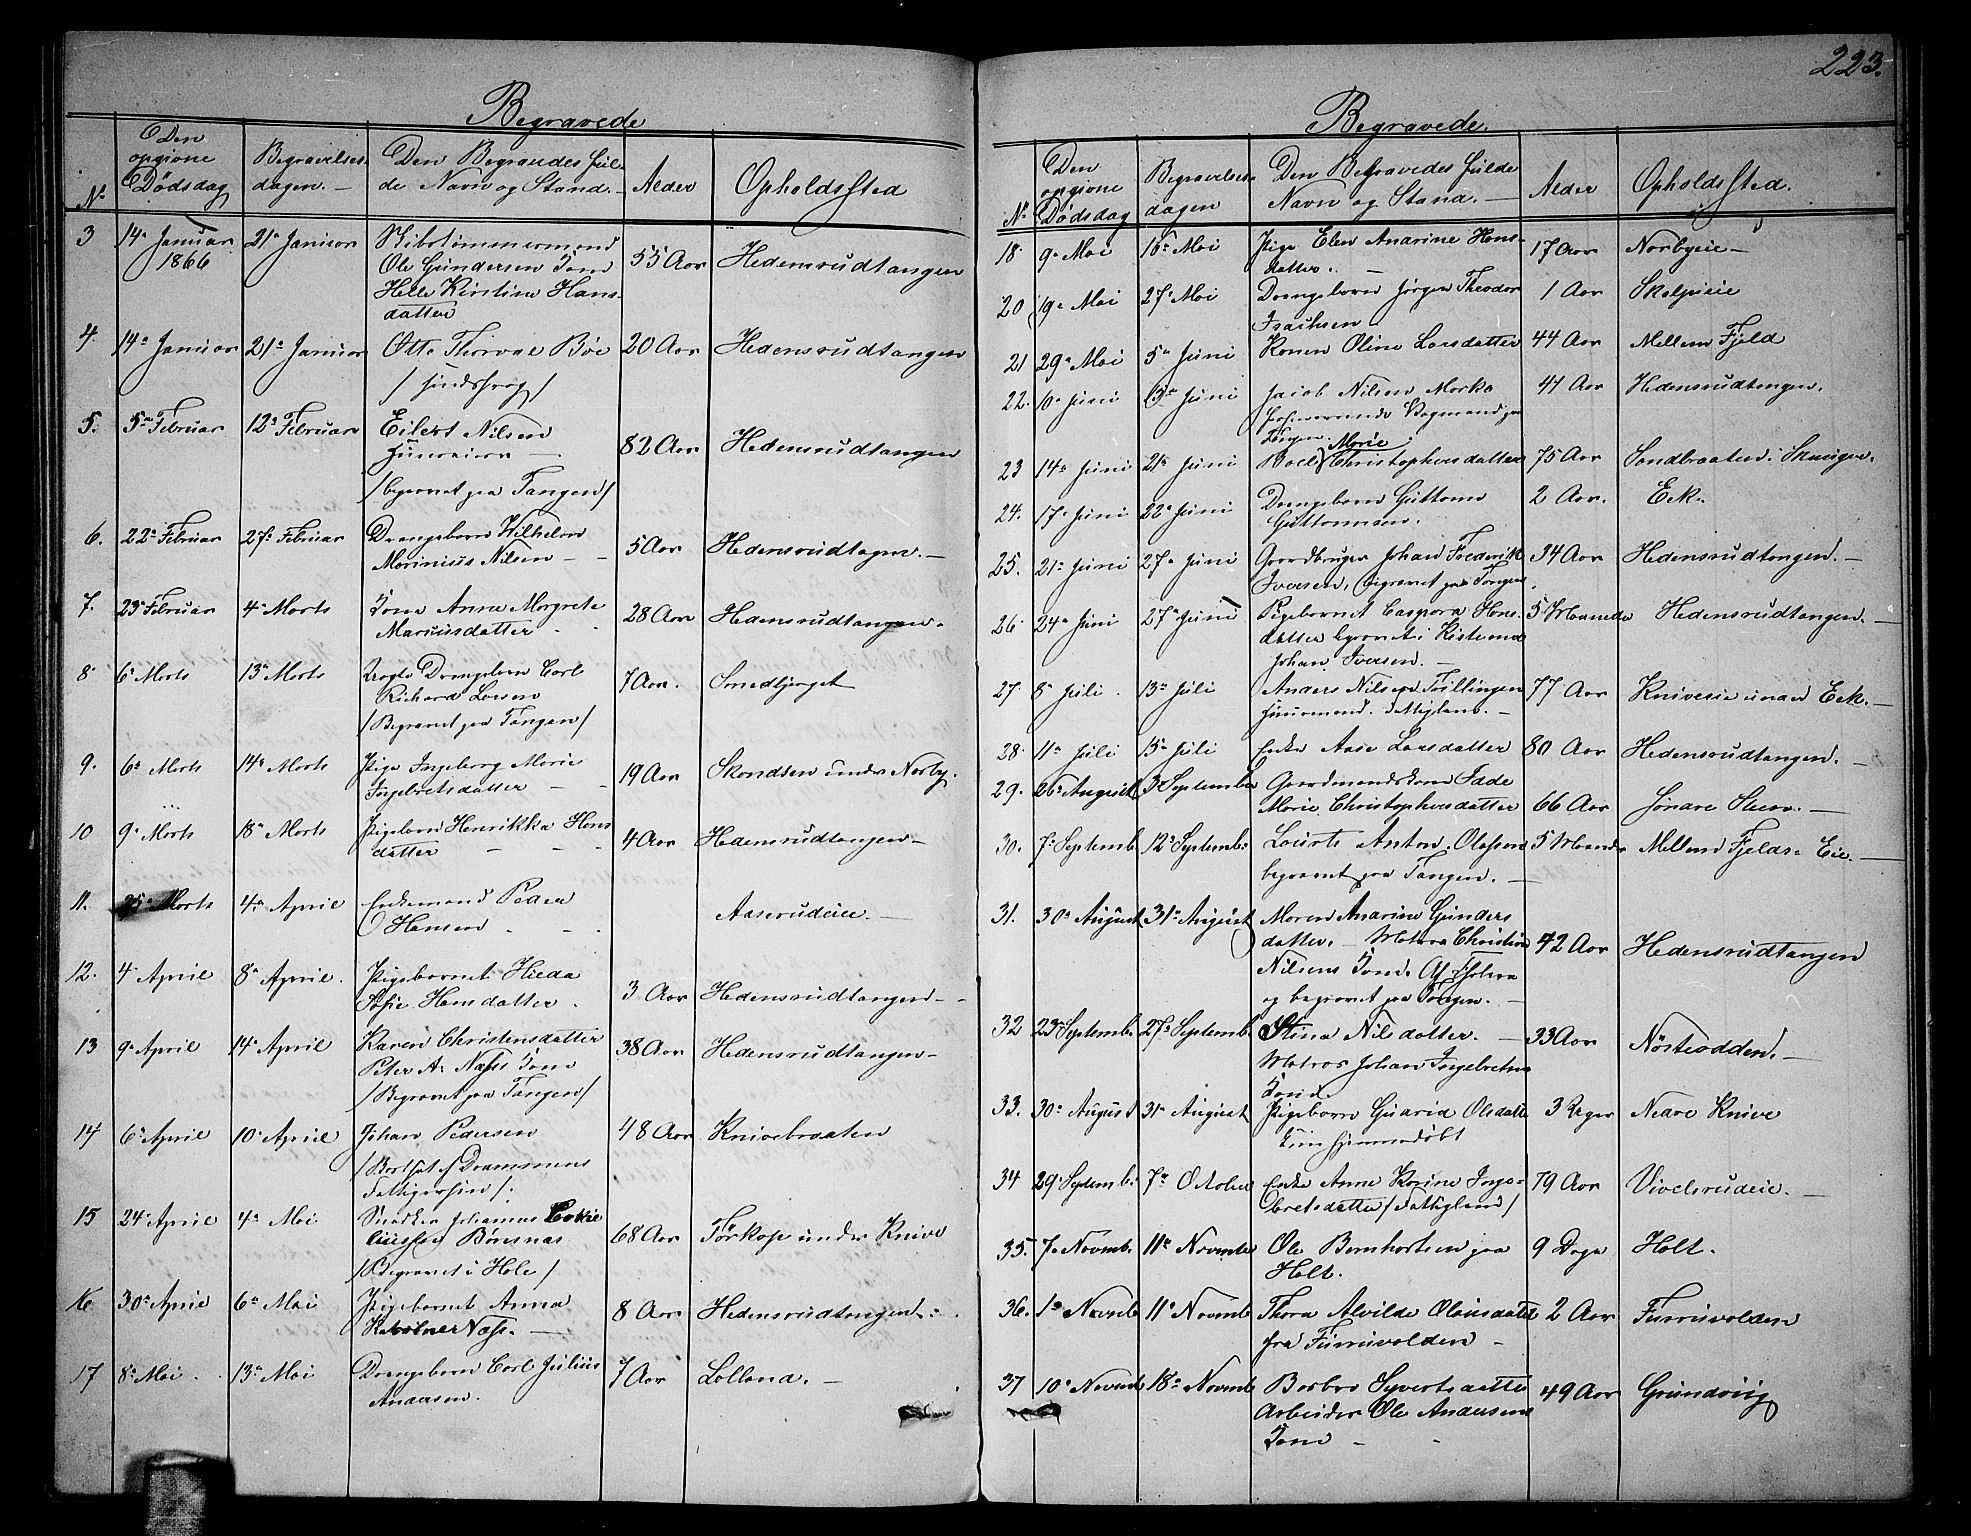 223.
Begravede
No
Den opgivne Dødsdag
Begravelsesdagen. —
Den Begravedes fulde Navn og Stand. —
Alder
Opholdssted
3 14de Januar 1866 21de Januar
Ole Gundersen Kone
Helle Kirstine Hansdatter
55 Aar Hedensrudtangen
4. 14de Januar 21de Januar Otto Thorval Böe 20 Aar Hedensrudtangen
5. 5te Februar 12te Februar Eilert Nilsen
82 Aar Hedensrudtangen
/begravet paa Tangen/
6. 22de Februar 27de Februar Drengebarn Wilhelm
Marinius Nilsen — 5 Aar Hedensrudtagen. —
7. 23de Februar 4de Marts Kone Anne Margrete
Mariusdatter 28 Aar Hedensrudtangen.
8 6te Marts 13de Marts Drengebarn Carl
Richard Larsen 7 Aar. Smedbjerget
/Begravet paa Tangen/
9. 6te Marts 14de Marts Pige Ingeborg Marie
Ingebretsdatter — 19 Aar Skondsen under Norby.
10 9de Marts 18de Marts Pigebarn Henrikka Hans
datter — 4 Aar Hedensrudtangen —
11. 25de Marts 4de April Enkemand Peder
Hansen Aaserudeie. —
12. 4de April 8de April. Pigebarnet Hilda
Sofie Hansdatter. 3 Aar Hedensrudtangen —
13 9de April 14de April Karen Christensdatter
Peter A. Næss Kone 38 Aar Hedensrudtangen —
/Begravet paa Tangen/
14 6te April 10de April Johan Pedersen 48 Aar Knivebraaten
/Bortsat af Drammens
15 24de April 4de Mai Snedker Johannes
Börsnæs 68 Aar Törkop under Knive
/Begravet i Hole/
16 30te April 6te Mai Pigebarnet Anna
Næss. — 8 Aar Hedensrudtangen.
17 8de Mai. 13de Mai Drengebarn Carl Julius
Andersen. 7 Aar Lolland. —
Begravede.
No
Den opgivne Dødsdag
Begravelsesdagen
Den Begravedes fulde Navn og Stand. —
Alder
Opholdssted.
18. 9de Mai 16de Mai Pige Elen Anarine Hans-
datter. — 17 Aar Norbyeie —
20 19de Mai 27de Mai Drengebarn Jörgen Theodor
Isachsen 1 Aar
21 29de Mai 5te Juni Konen Oline Larsdatter 44 Aar Mellem Fjeld
22. 6te Juni 13de Juni Jacob Nilsen 41 Aar Hedensrudtangen.
Tangen.
23 14de Juni 21de Juni Boel Marie Christophersdatter 75 Aar Sandbraaten i Skougen.
24. 17de Juni 22de Juni Drengebarn Guttorm
Guttormsen. 2 Aar. Eek.
25. 21de Juni 27de Juni Gaardbruger Johan Frederik
Iversen, begravet paa Tangen 34 Aar Hedensrudtangen. —
26 24de Juni 27de Juni Pigebarnet Caspara Hans-
datter begravet i Kiste med
Johan Iversen. — 5 Maaneder Hedensrudtangen. —
27. 8de Juli. 13de Juli Anders Nilsen Tvillingen
Huusmand. Fattiglem. — 77 Aar Kniveeie under Eek. —
28. 11te Juli 15de Juli Enke Aase Larsdatter 80 Aar Hedensrudtangen. —
29. 26de August 3de September Gaardmandskone
Marie Christophersdatter 66 Aar —
30. 7de Septemb. 12te Septemb: Anton. Olafsen
begravet paa Tangen. — 5 Maaneder Mellem Fjelds Eie. —
31. 30te August 31te August Maren Anarine Gunders
datter. — Matros Christian
Nilsens Kone. Af
og begravet paa Tangen. — 42 Aar Hedensrudtangen
32 23de Septemb. 27de Septemb. Stina Nilsdatter. —
Matros Johan Ingebretsens
Kone. 33 Aar Nösteodden. —
33. 30te August 31te August Pigebarn Olsdatter
hjemmedöbt 3 Uger Nedre Knive
34 29de Septemb: 7de October Enke Anne Karine Inge-
bretsdatter /Fattiglem/ 79 Aar Vivelsrudeie. —
35. 7de Novemb. 11te November Ole Bernhartsen paa
Holt. 9 Dage Holt.
36. 1te Novemb 11te Novemb Thora Alvilde Olausdatter
fra Furruvolden — 2 Aar Furruvolden
37 10de Novemb 18de Novemb Barbro Syvertsdatter
Arbeider Ole Andersens
Kone — 49 Aar Grundvig